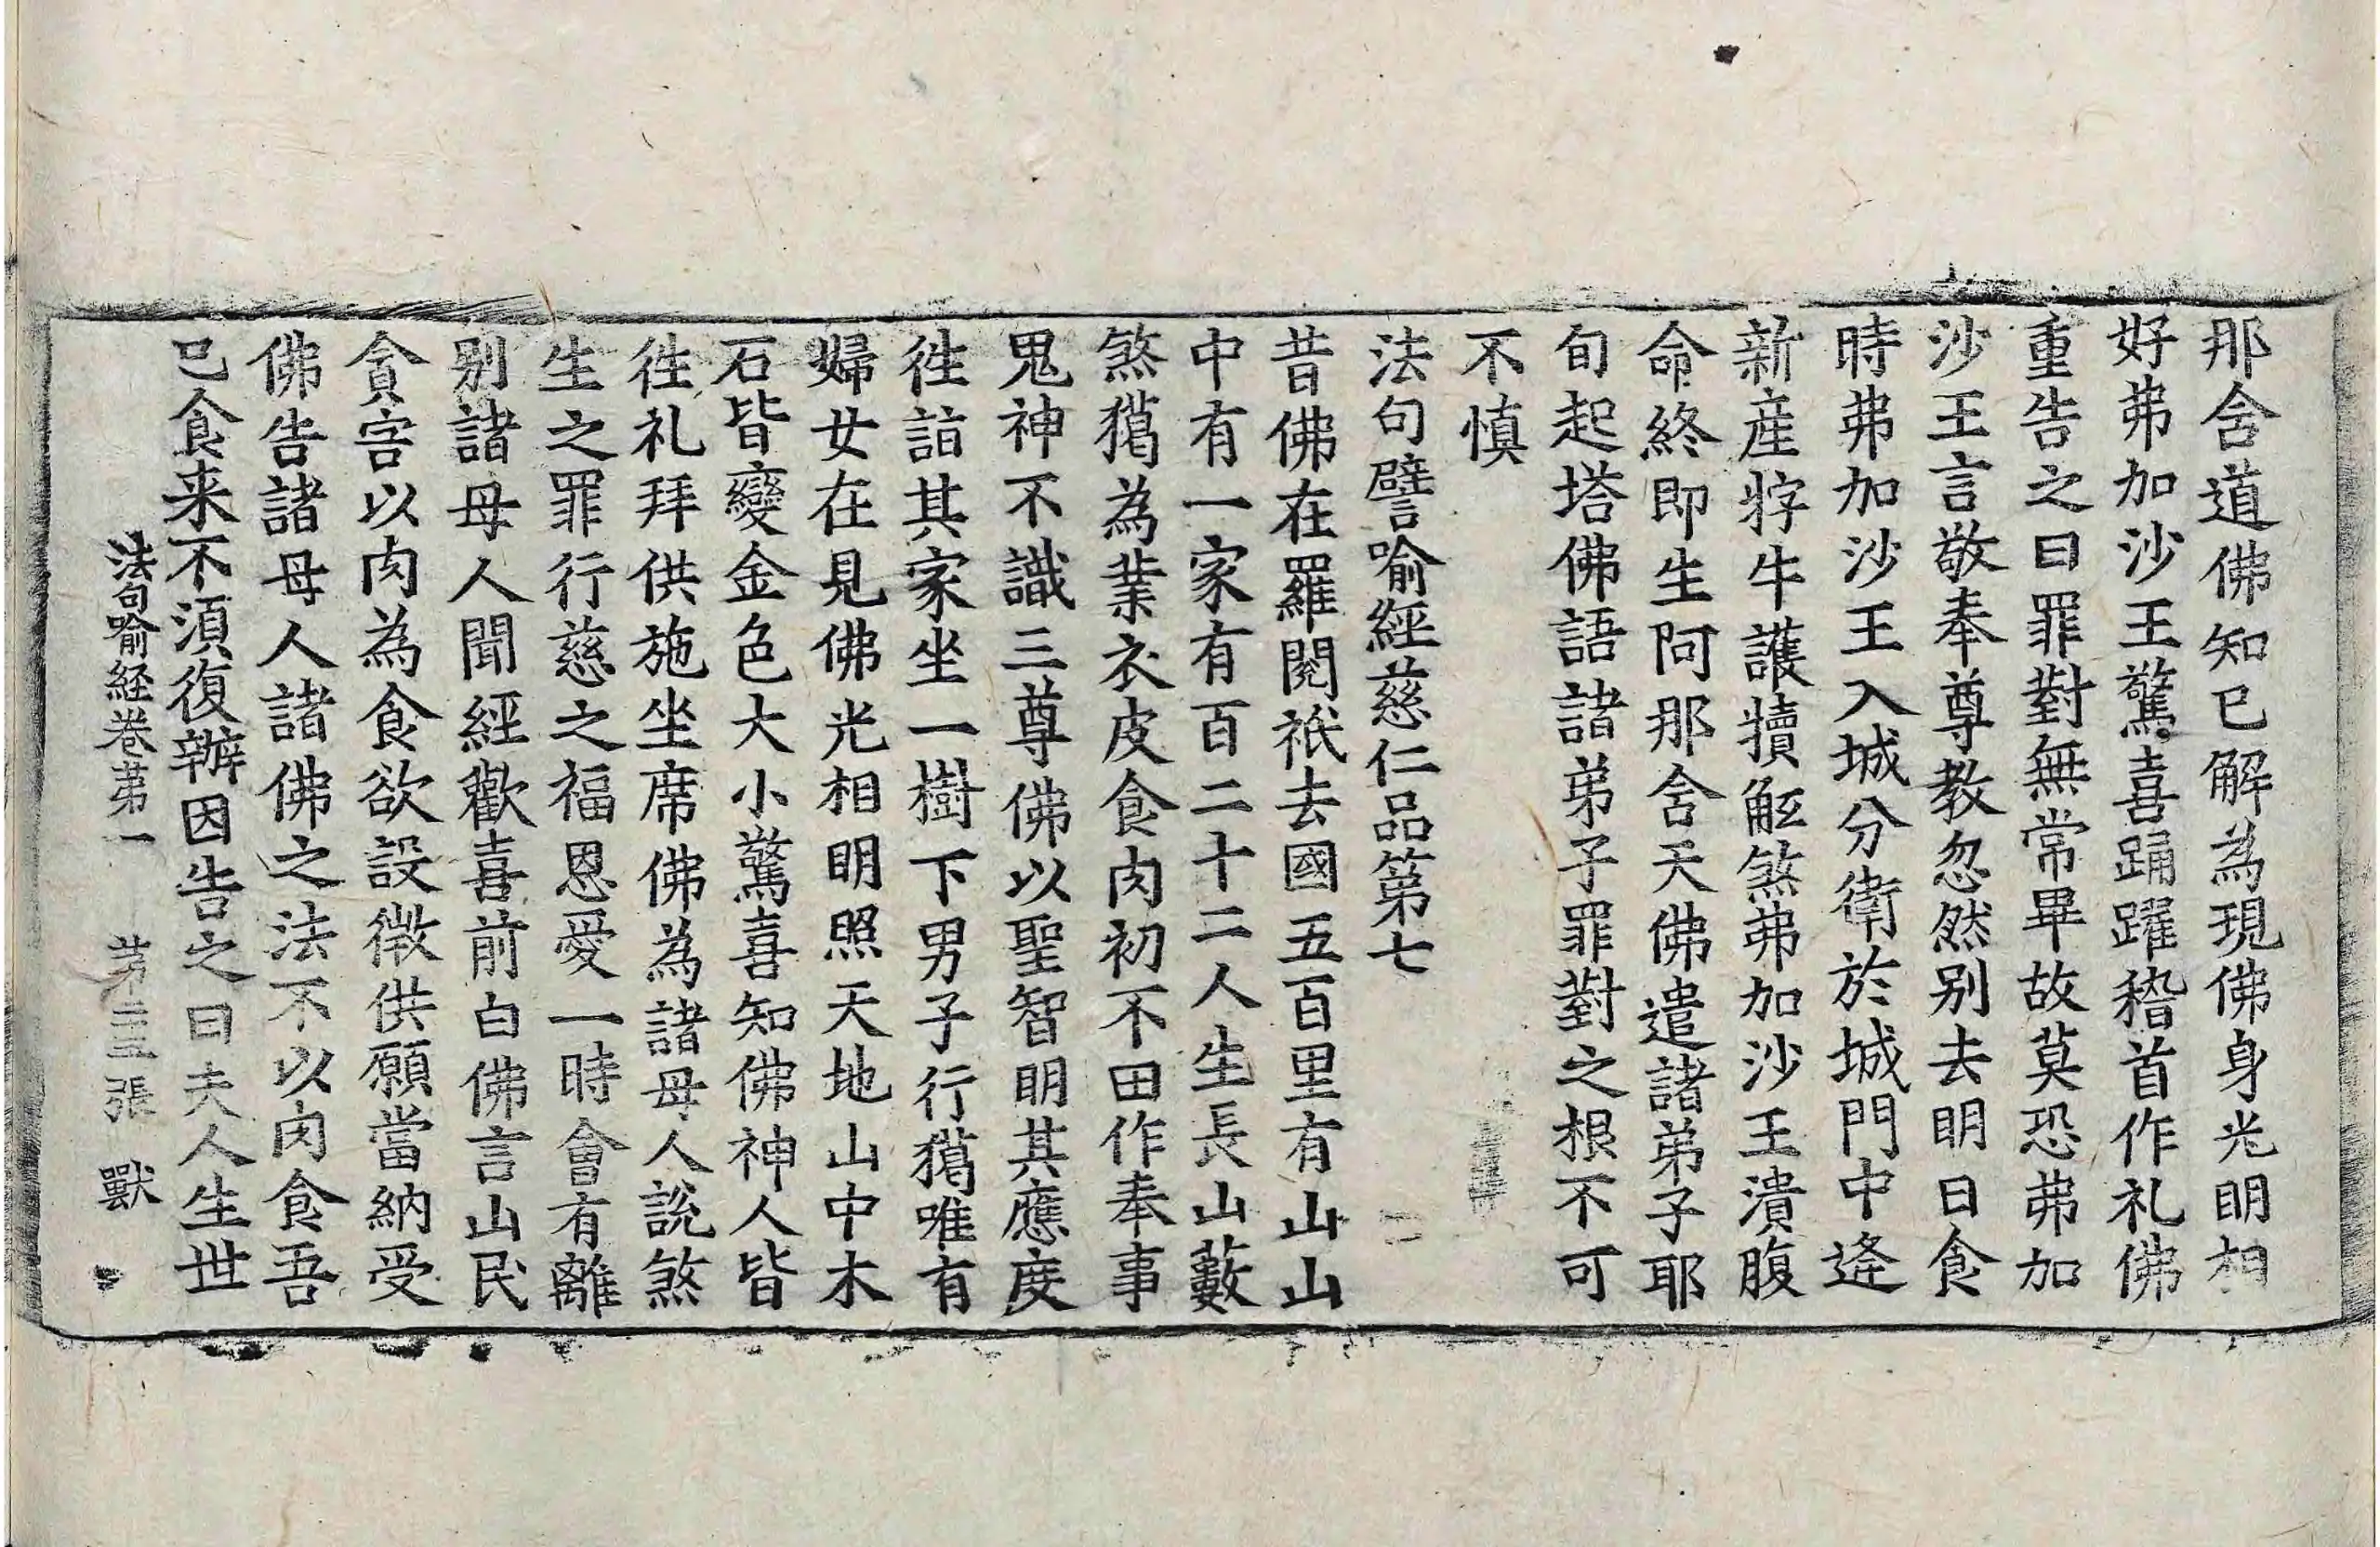 那含道佛知已解為現佛身光明相
好弗加沙王驚喜踊躍稽首作礼佛
重告之曰罪對無常畢故莫恐弗加
沙王言敬奉尊教忽然别去明日食
時弗加沙王入城分衛於城門中逢
新産牸牛護犢觝煞弗加沙王潰腹
命終即生阿那含天佛遣諸弟子耶
旬起塔佛語諸弟子罪對之根不可
不慎
法句譬喻經慈仁品第七
昔佛在羅閱祇去國五百里有山山
中有一家有百二十二人生長山藪
煞獦為業衣皮食肉初不田作奉事
鬼神不識三尊佛以聖智明其應度
徃詣其家坐一樹下男子行獦唯有
婦女在見佛光相明照天地山中木
石皆變金色大小驚喜知佛神人皆
徃礼拜供施坐席佛為諸母人說煞
生之罪行慈之福恩愛一時會有離
别諸母人聞經歡喜前白佛言山民
貪害以肉為食欲設微供願當納受
佛告諸母人諸佛之法不以肉食吾
已食来不須復辦因告之曰夫人生世
法句喻経卷苐一 苐 張 獸